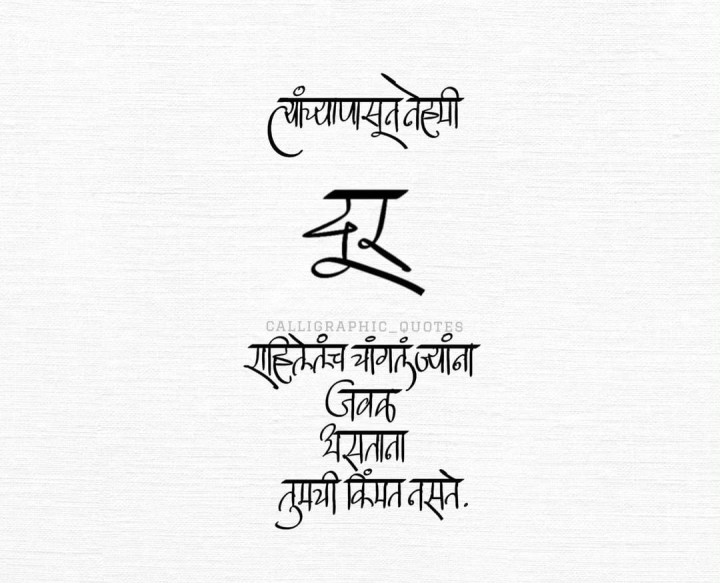 त्यांच्यापासून नेहमी
दूर
CALLIGRAPHIC_QUOTES
राहिलेलंच चांगलं ज्यांना
जवळ
असताना
तुमची किंमत नसते.